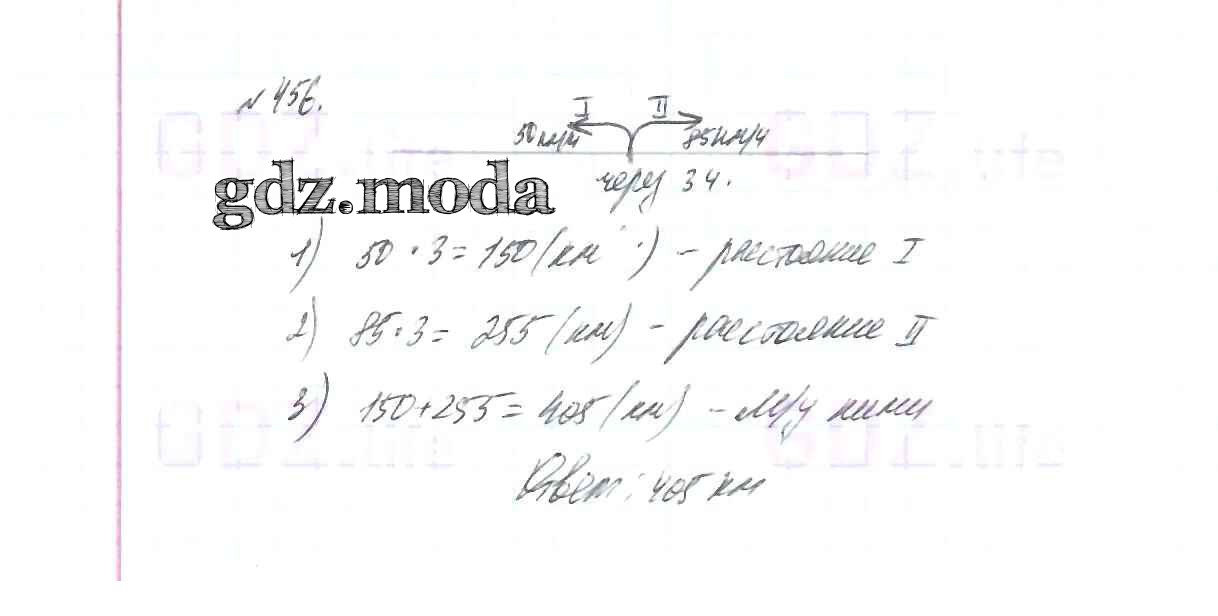 № 456.
I II
50 км/ч 85 км/ч
через 3 ч.
gdz.moda
1) 50 · 3 = 150 (км) – расстояние I
2) 85 · 3 = 255 (км) – расстояние II
3) 150 + 255 = 405 (км) – м/у ними
Ответ: 405 км
GDZ.life GDZ.life
GDZ.life GDZ.life